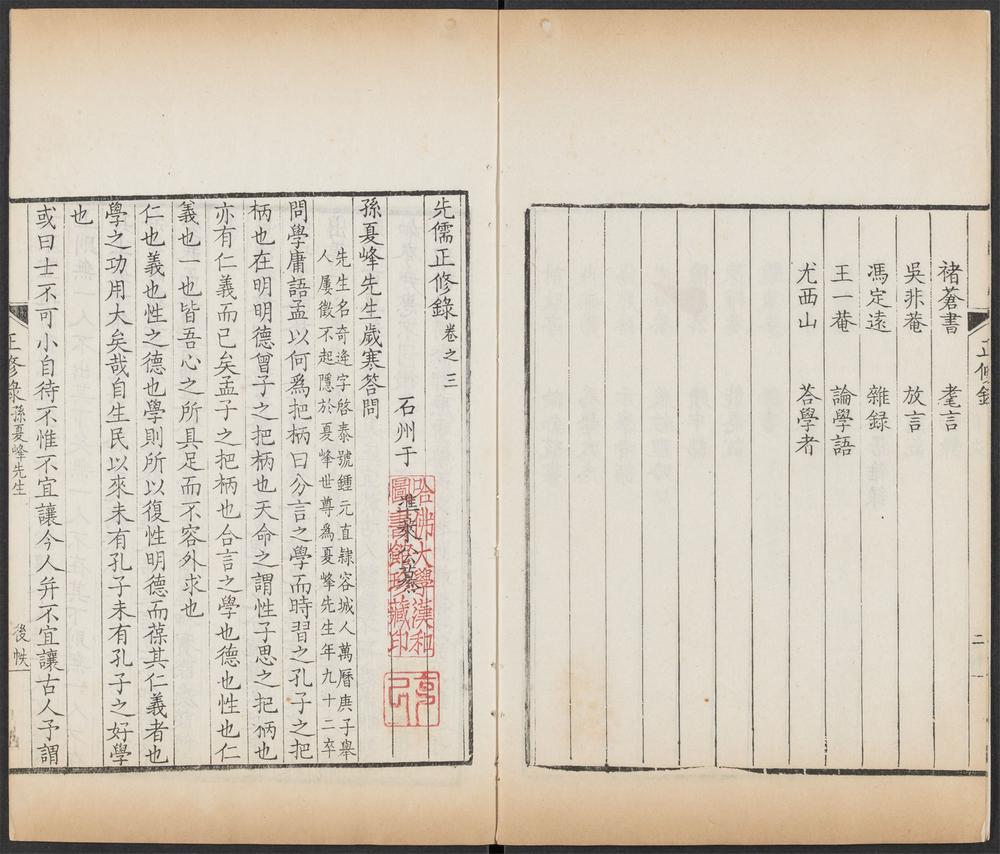 褚蒼書 耄言
吳非菴 放言
馮定遠 雜録
王一菴 論學語
尤西山 荅學者
二
先儒正修錄 卷之三
石州于
準萊公纂
哈佛大學漢和
圖書館珍藏印
孫夏峰先生歲寒答問
先生名奇逢字啓泰號鍾元直隸容城人萬曆庚子舉
人屢徵不起隱於夏峰世尊爲夏峰先生年九十二卒
問學庸語孟以何爲把柄曰分言之學而時習之孔子之把
柄也在明明德曾子之把柄也天命之謂性子思之把柄也
亦有仁義而已矣孟子之把柄也合言之學也德也性也仁
義也一也皆吾心之所具足而不容外求也
仁也義也性之德也學則所以復性明德而葆其仁義者也
學之功用大矣哉自生民以來未有孔子未有孔子之好學
也
或曰士不可小自待不惟不宜讓今人并不宜讓古人予謂
正修錄 孫夏峰先生
後帙